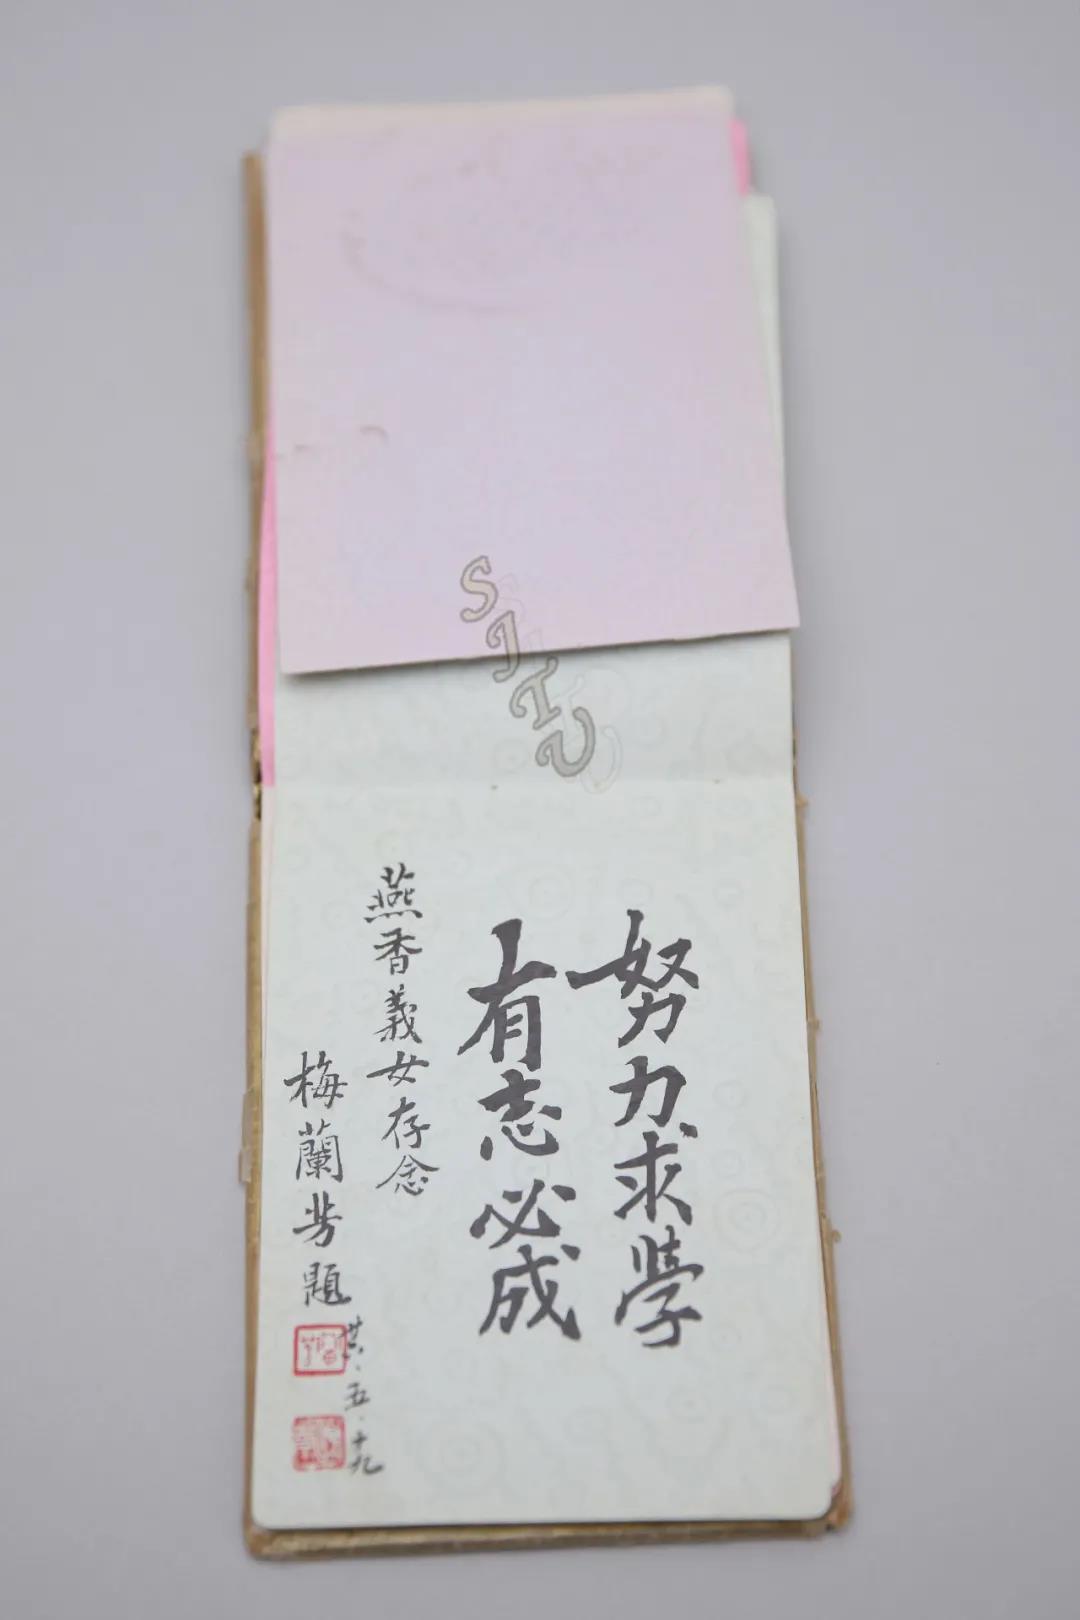 SITU
努力求學
有志必成
燕香義女存念
梅蘭芳題
卅六·五·十九